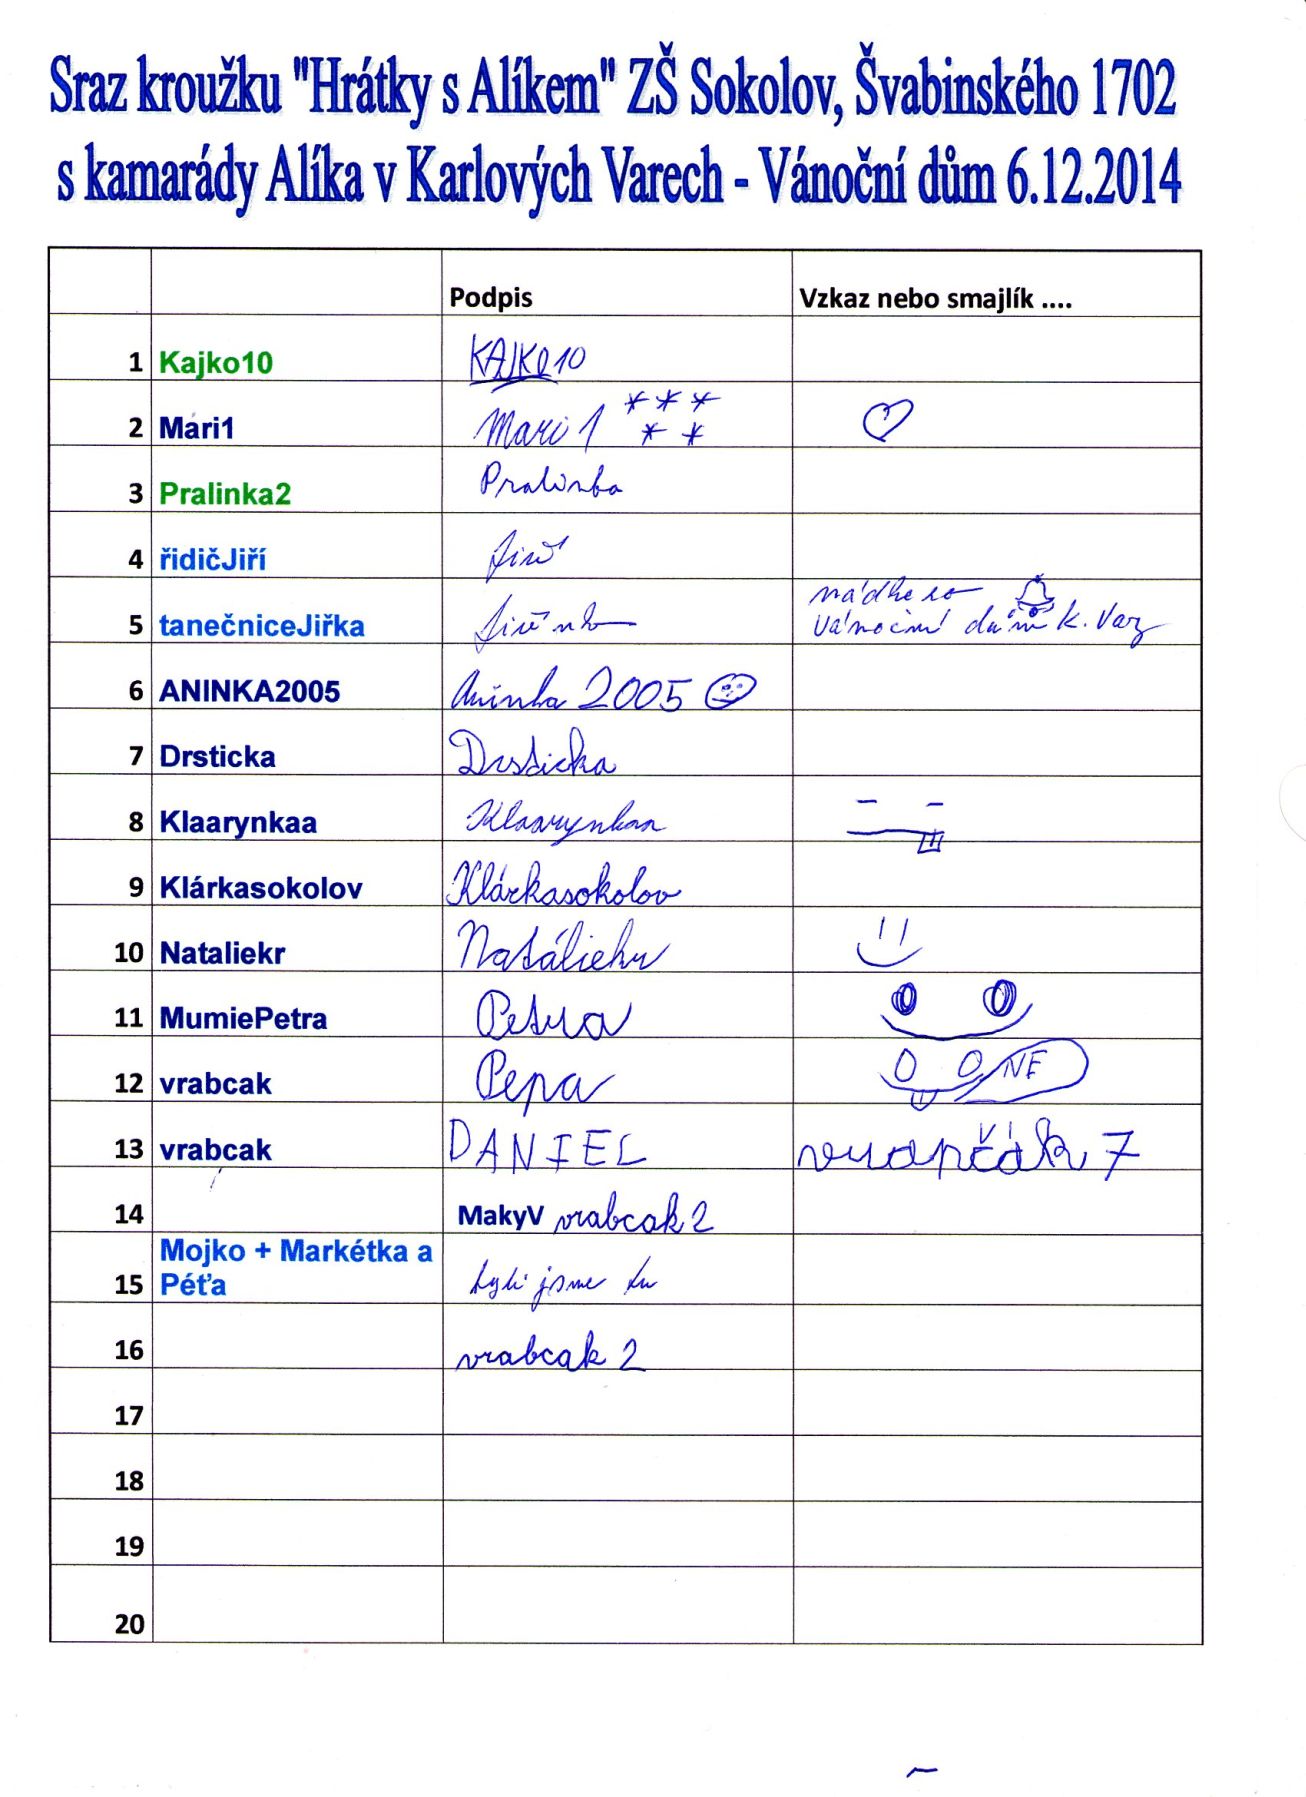 Sraz kroužku "Hrátky s Alíkem" ZŠ Sokolov, Švabinského 1702
s kamarády Alíka v Karlových Varech - Vánoční dům 6.12.2014
Podpis Vzkaz nebo smajlík ....
1 Kajko10 KAJKO10
2 Mari1 Mari 1
3 Pralinka2 Pralinka
4 řidičJiří Jiří
5 tanečniceJiřka Jiřinka
vánoční dům K. Vary
6 ANINKA2005 Aninka 2005
7 Drsticka Drsticka
8 Klaarynkaa Klaarynkaa
9 Klárkasokolov Klárkasokolov
10 Nataliekr Natáliekr
11 MumiePetra Petra
12 vrabcak Pepa NE
13 vrabcak DANIEL vrapčák 7
14 MakyV vrabcak 2
Mojko + Markétka a
15 Péťa byli jsme tu
16 vrabcak 2
17
18
19
20